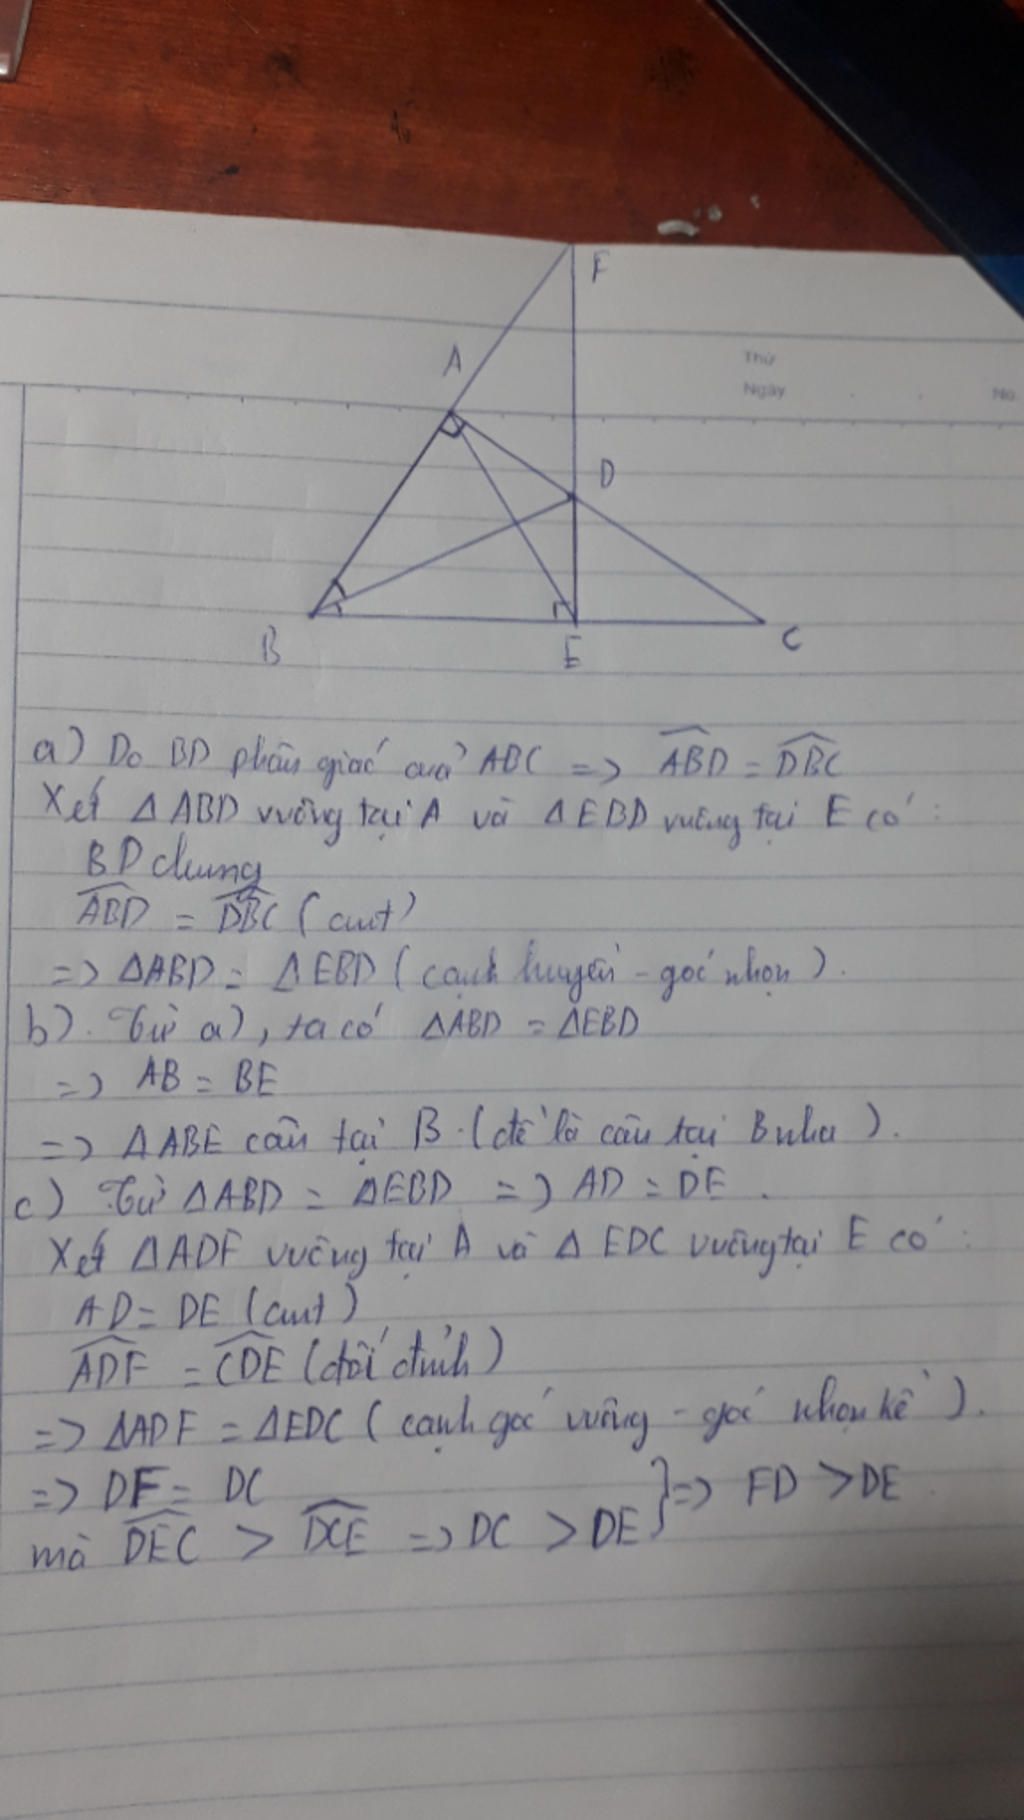 F
Thứ
A
Ngày
No.
D
B
E
C
a) Do BD phân giác của ABC => \widehat{ABD} = \widehat{DBC}
Xét ΔABD vuông tại A và ΔEBD vuông tại E có:
BD chung
\widehat{ABD} = \widehat{DBC} (cmt)
=> ΔABD = ΔEBD (cạnh huyền - góc nhọn).
b). Từ a), ta có ΔABD = ΔEBD
=> AB = BE
=> ΔABE cân tại B. (đề là cân tại B nha).
c) Từ ΔABD = ΔEBD => AD = DE.
Xét ΔADF vuông tại A và ΔEDC vuông tại E có:
AD = DE (cmt)
\widehat{ADF} = \widehat{CDE} (đối đỉnh)
=> ΔADF = ΔEDC (cạnh góc vuông - góc nhọn kề).
=> DF = DC
mà \widehat{DEC} > \widehat{DCE} => DC > DE } => FD > DE.